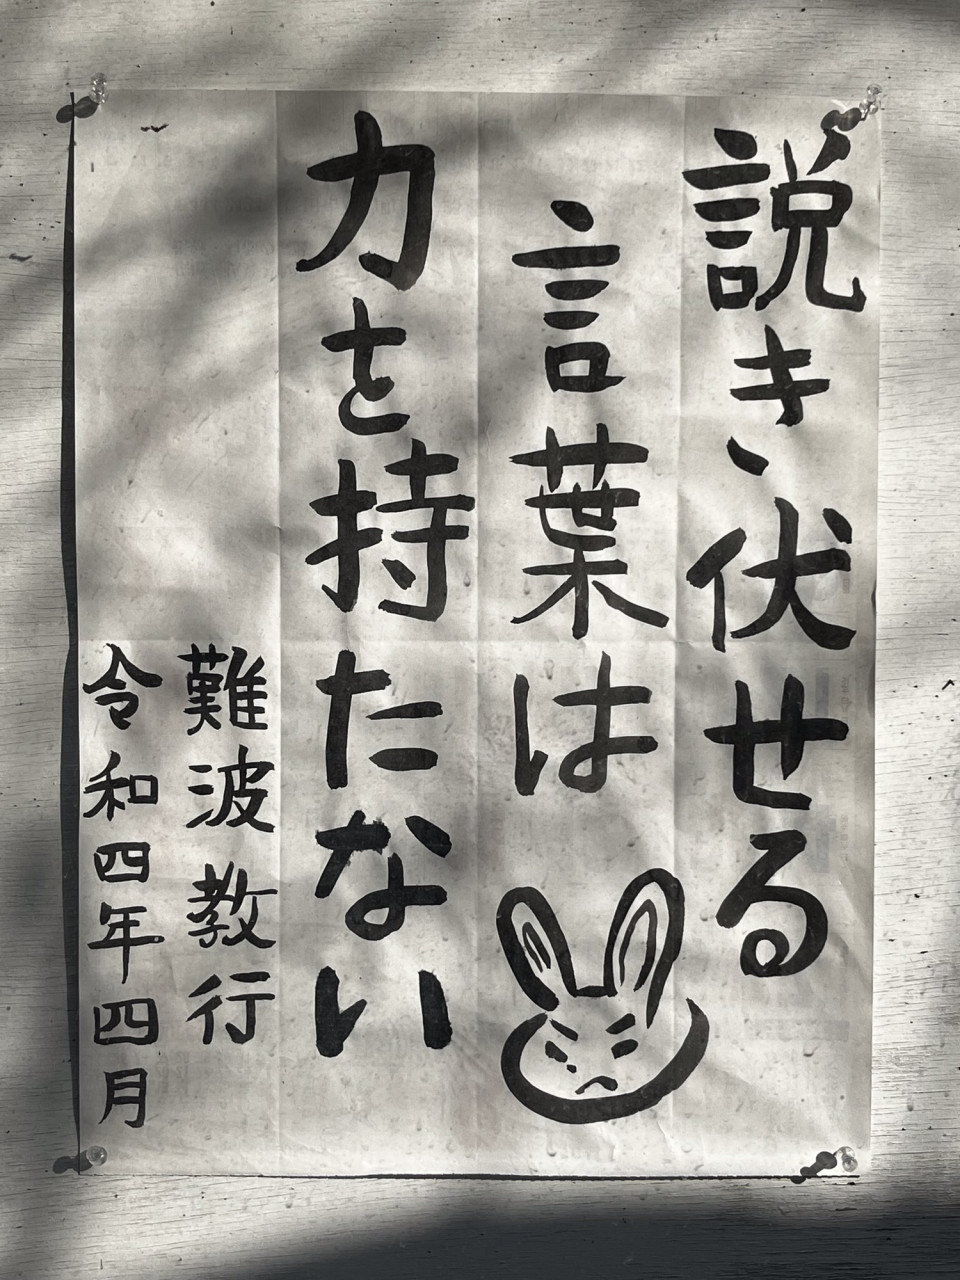 説き、伏せる
言葉は
力を持たない
難波教行
令和四年四月